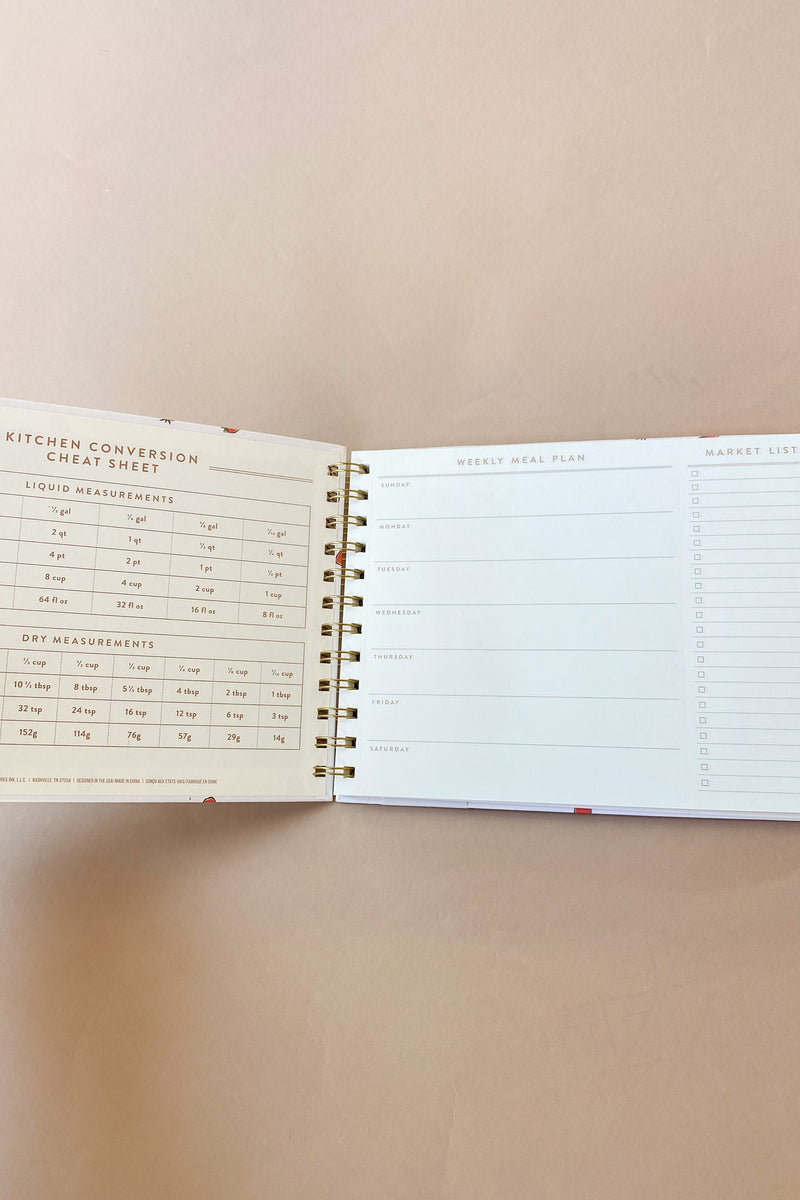 KITCHEN CONVERSION
CHEAT SHEET
LIQUID MEASUREMENTS
½ gal ¼ gal ⅛ gal 1/16 gal
2 qt 1 qt ½ qt ¼ qt
4 pt 2 pt 1 pt ½ pt
8 cup 4 cup 2 cup 1 cup
64 fl oz 32 fl oz 16 fl oz 8 fl oz
DRY MEASUREMENTS
cup ½ cup ⅓ cup ¼ cup ⅛ cup 1/16 cup
10 ⅔ tbsp 8 tbsp 5 ⅓ tbsp 4 tbsp 2 tbsp 1 tbsp
32 tsp 24 tsp 16 tsp 12 tsp 6 tsp 3 tsp
152g 114g 76g 57g 29g 14g
RKS INK, L.L.C. | NASHVILLE, TN 37204 | DESIGNED IN THE USA/MADE IN CHINA | CONÇU AUX ETATS-UNIS/FABRIQUÉ EN CHINE
WEEKLY MEAL PLAN
SUNDAY
MONDAY
TUESDAY
WEDNESDAY
THURSDAY
FRIDAY
SATURDAY
MARKET LIST